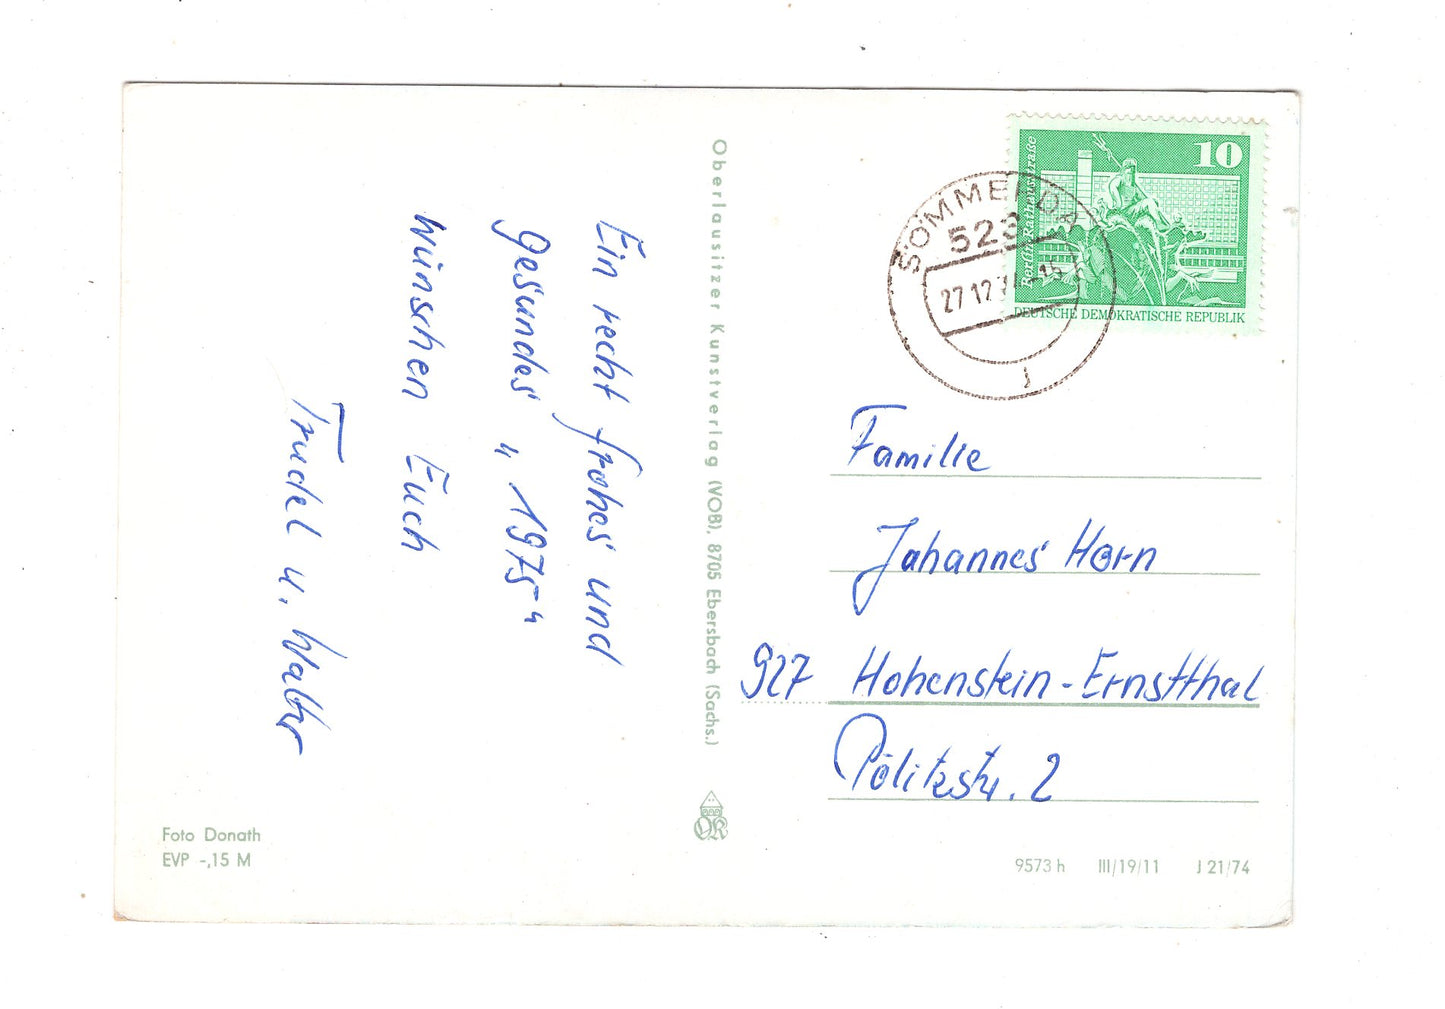 Ein recht frohes und
gesundes „1975“
wünschen Euch
Trudel u. Walter
Foto Donath
EVP -,15 M
Oberlausitzer Kunstverlag (VOB), 8705 Ebersbach (Sachs.)
10
Berlin-Rathausstraße
DEUTSCHE DEMOKRATISCHE REPUBLIK
SÖMMERDA
523
27.12.74-15
Familie
Johannes Horn
927 Hohenstein-Ernstthal
Pölitzstr. 2
9573 h III/19/11 J 21/74